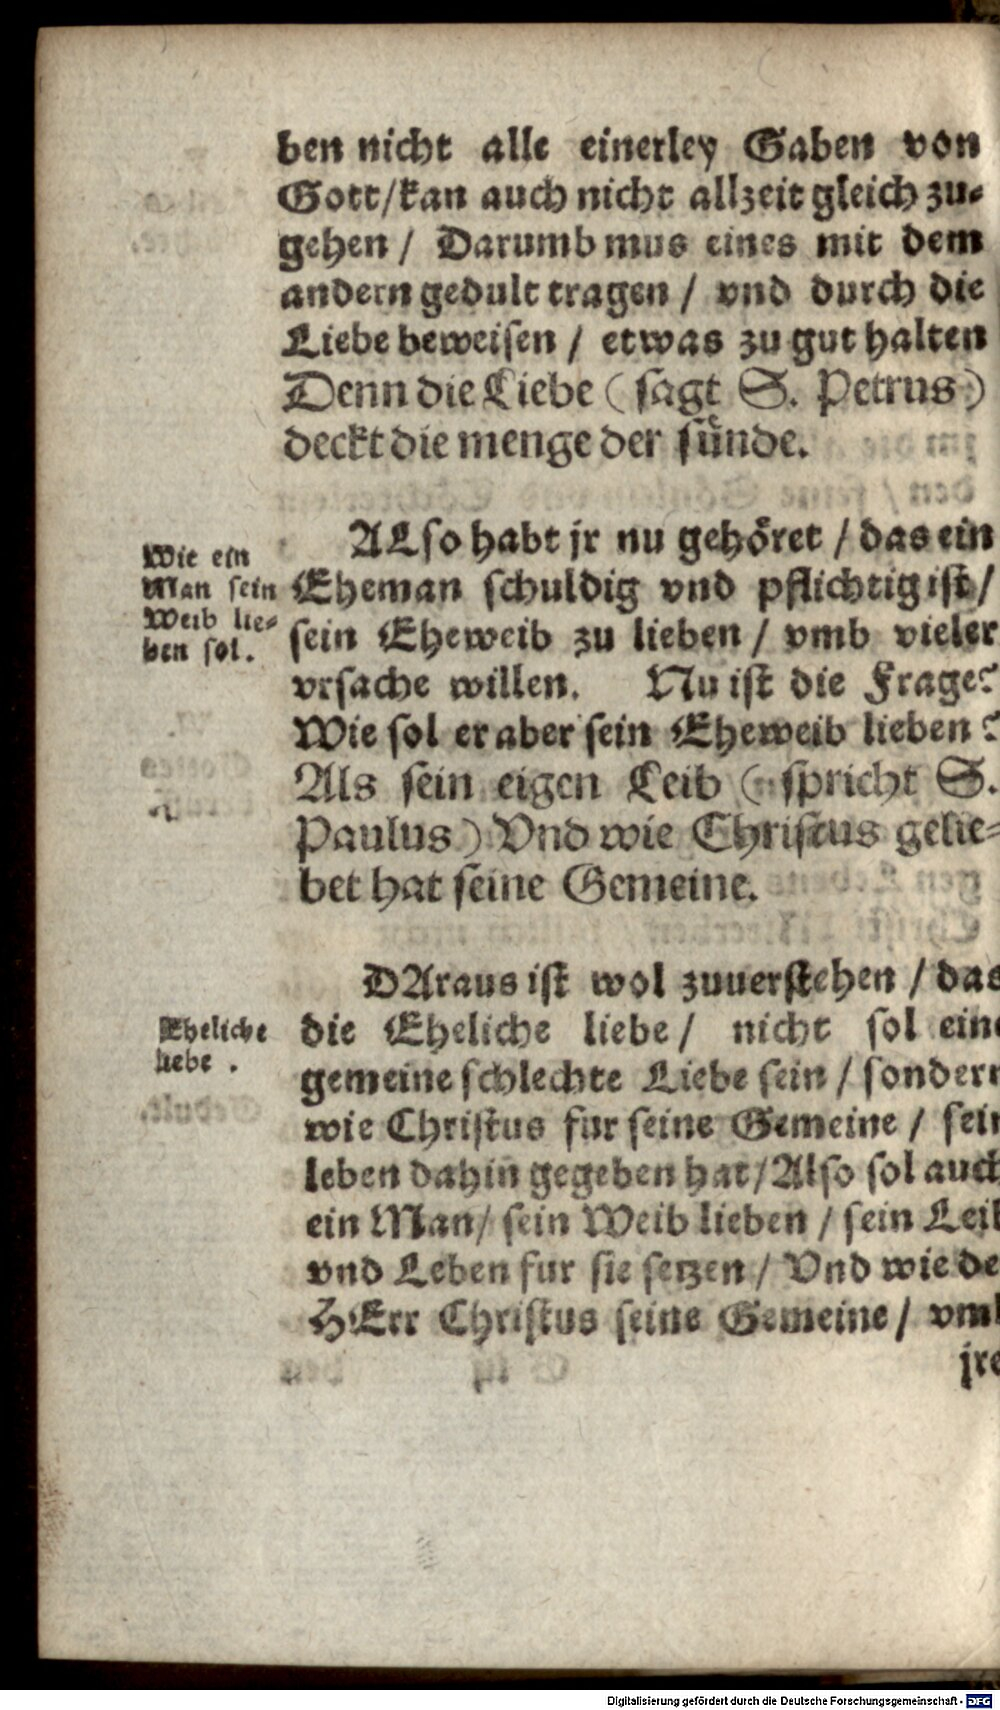 ben nicht alle einerley Gaben von
Gott/kan auch nicht allzeit gleich zu-
gehen / Darumb mus eines mit dem
andern gedult tragen / vnd durch die
Liebe beweisen / etwas zu gut halten
Denn die Liebe ( sagt S. Petrus )
deckt die menge der sünde.
Wie ein
Man sein
Weib lie-
ben sol.
ALso habt jr nu gehöret / das ein
Eheman schuldig vnd pflichtig ist/
sein Eheweib zu lieben / vmb vieler
vrsache willen. Nu ist die Frage?
Wie sol er aber sein Eheweib lieben?
Als sein eigen Leib ( spricht S.
Paulus ) Vnd wie Christus gelie-
bet hat seine Gemeine.
Eheliche
liebe .
DAraus ist wol zuuerstehen / das
die Eheliche liebe / nicht sol eine
gemeine schlechte Liebe sein / sondern
wie Christus fur seine Gemeine / sein
leben dahin gegeben hat/Also sol auch
ein Man/ sein Weib lieben / sein Leib
vnd Leben fur sie setzen / Vnd wie de
HErr Christus seine Gemeine / vmb
jre
Digitalisierung gefördert durch die Deutsche Forschungsgemeinschaft - DFG